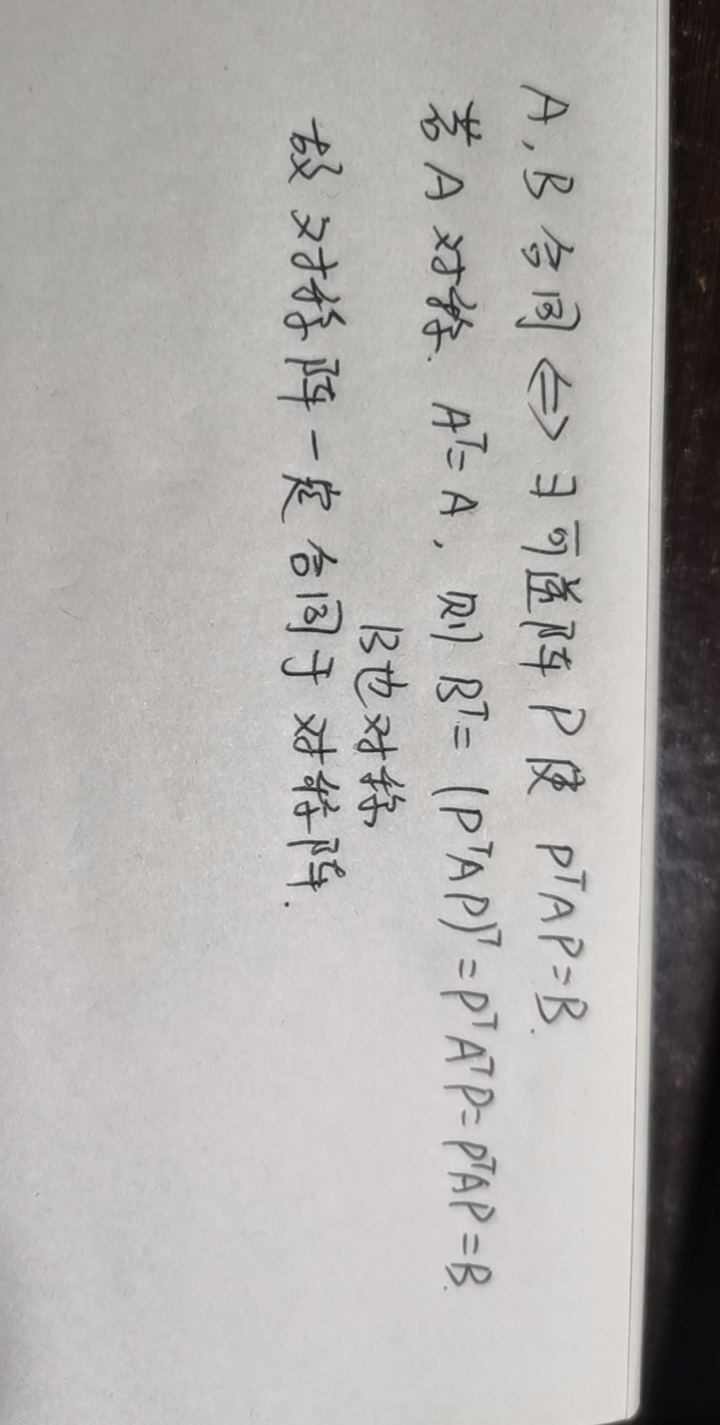 A, B 合同 ⇔ ∃ 可逆阵 P 使 PᵀAP=B.
若 A 对称. Aᵀ=A, 则 Bᵀ=(PᵀAP)ᵀ=PᵀAᵀP=PᵀAP=B.
B也对称
故对称阵一定合同于对称阵.